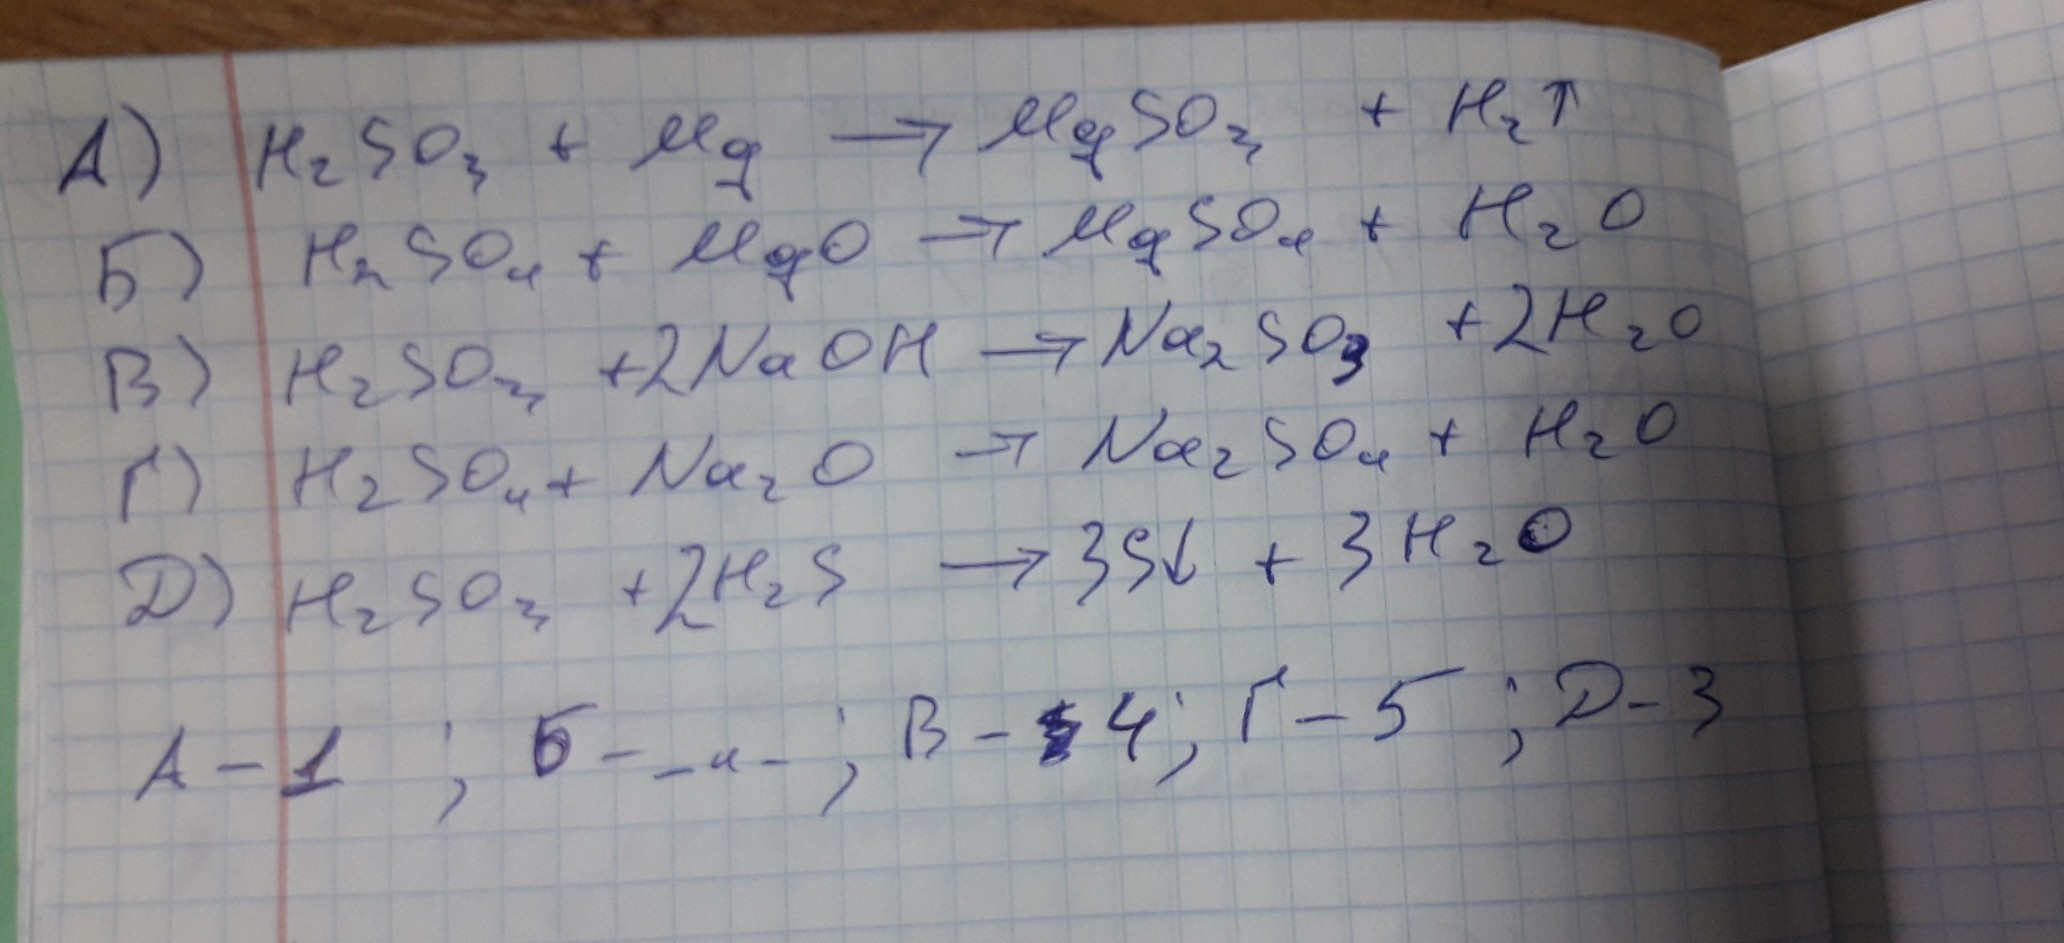 А) H₂SO₃ + Mg → MgSO₃ + H₂↑
Б) H₂SO₄ + MgO → MgSO₄ + H₂O
В) H₂SO₃ +2NaOH → Na₂SO₃ +2H₂O
Г) H₂SO₄ + Na₂O → Na₂SO₄ + H₂O
Д) H₂SO₃ +2H₂S → 3S↓ + 3H₂O
А – 1 ; Б – –"– ; В – 4; Г – 5 ; Д – 3